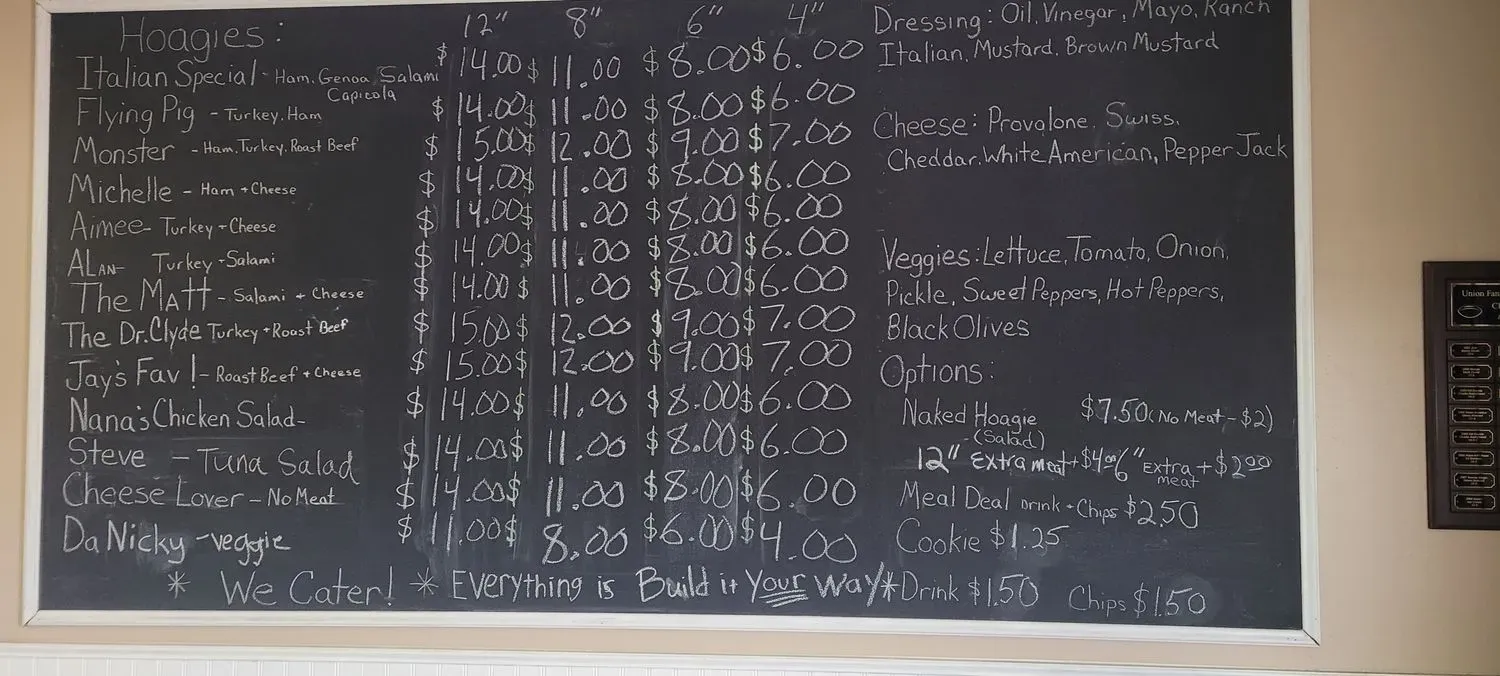 Hoagies: 12" 8" 6" 4"
Italian Special - Ham, Genoa Salami Capicola $14.00 $11.00 $8.00 $6.00
Flying Pig - Turkey, Ham $14.00 $11.00 $8.00 $6.00
Monster - Ham, Turkey, Roast Beef $15.00 $12.00 $9.00 $7.00
Michelle - Ham + Cheese $14.00 $11.00 $8.00 $6.00
Aimee - Turkey + Cheese $14.00 $11.00 $8.00 $6.00
ALAN - Turkey + Salami $14.00 $11.00 $8.00 $6.00
The MATT - Salami + Cheese $14.00 $11.00 $8.00 $6.00
The Dr. Clyde Turkey + Roast Beef $15.00 $12.00 $9.00 $7.00
Jay's Fav! - Roast Beef + Cheese $15.00 $12.00 $9.00 $7.00
Nana's Chicken Salad - $14.00 $11.00 $8.00 $6.00
Steve - Tuna Salad $14.00 $11.00 $8.00 $6.00
Cheese Lover - No Meat $14.00 $11.00 $8.00 $6.00
Da Nicky - veggie $11.00 $8.00 $6.00 $4.00
* We Cater! * Everything is Build it Your Way *
Dressing: Oil, Vinegar, Mayo, Ranch
Italian, Mustard, Brown Mustard
Cheese: Provalone, Swiss,
Cheddar, White American, Pepper Jack
Veggies: Lettuce, Tomato, Onion,
Pickle, Sweet Peppers, Hot Peppers,
Black Olives
Options:
Naked Hoagie $7.50 (No Meat - $2)
(Salad)
12" Extra meat + $4.00 / 6" Extra meat + $2.00
Meal Deal Drink + Chips $2.50
Cookie $1.25
Drink $1.50 Chips $1.50
Union Fan